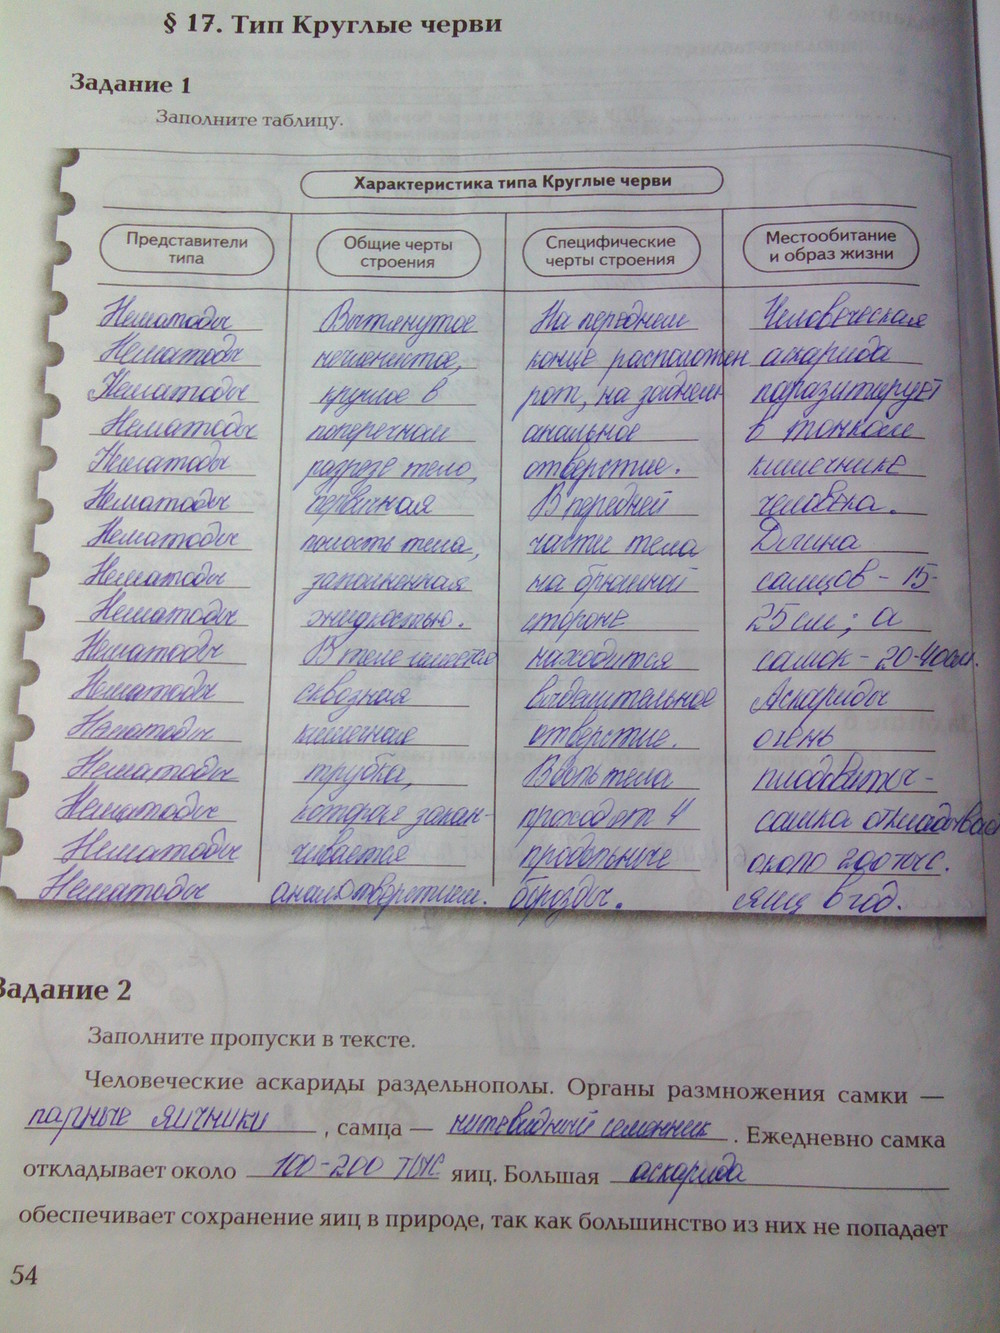 § 17. Тип Круглые черви
Задание 1
Заполните таблицу.
Характеристика типа Круглые черви
Представители типа
Общие черты строения
Специфические черты строения
Местообитание и образ жизни
Нематоды Вытянутое На переднем Человеческая
Нематоды нечленистое, конце расположен аскарида
Нематоды круглое в рот, на заднем паразитирует
Нематоды поперечном анальное в тонком
Нематоды разрезе тело, отверстие. кишечнике
Нематоды первичная В передней человека.
Нематоды полость тела, части тела Длина
Нематоды заполненная на брюшной самцов - 15-
Нематоды жидкостью. стороне 25 см; а
Нематоды В теле имеется находится самок - 20-40см.
Нематоды сквозная выделительное Аскариды
Нематоды кишечная отверстие. очень
Нематоды трубка, Вдоль тела плодовиты -
Нематоды которая закан- проходят 4 самка откладывает
Нематоды чивается продольные около 200 тыс.
Нематоды анал. отверстием. борозды. яиц в год.
Задание 2
Заполните пропуски в тексте.
Человеческие аскариды раздельнополы. Органы размножения самки —
парные яичники , самца — нитевидный семенник . Ежедневно самка
откладывает около 100-200 тыс яиц. Большая аскарида
обеспечивает сохранение яиц в природе, так как большинство из них не попадает
54